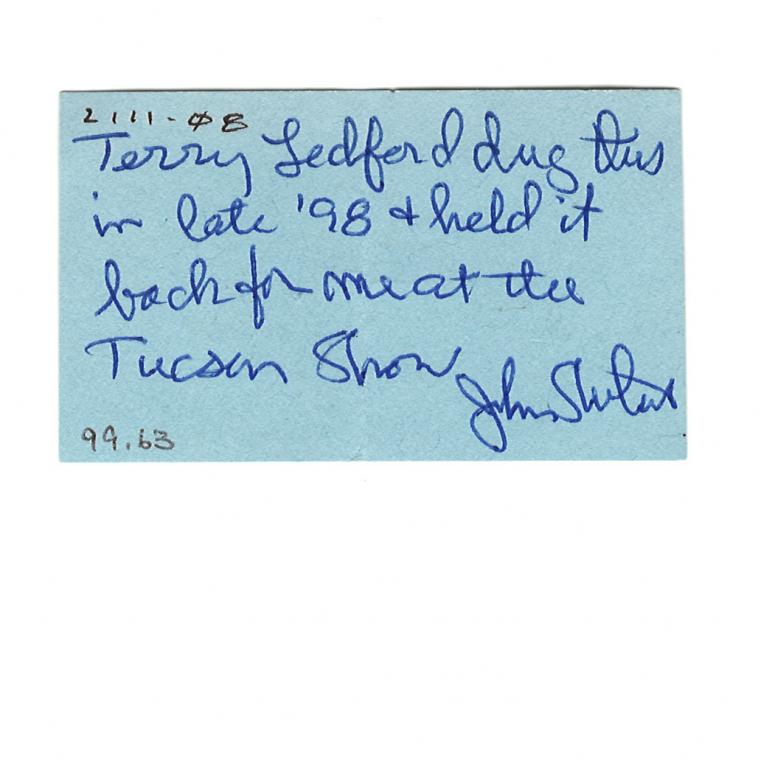 2111-Ø8
Terry Ledford dug this
in late '98 & held it
back for me at the
Tucson Show
John
99.63